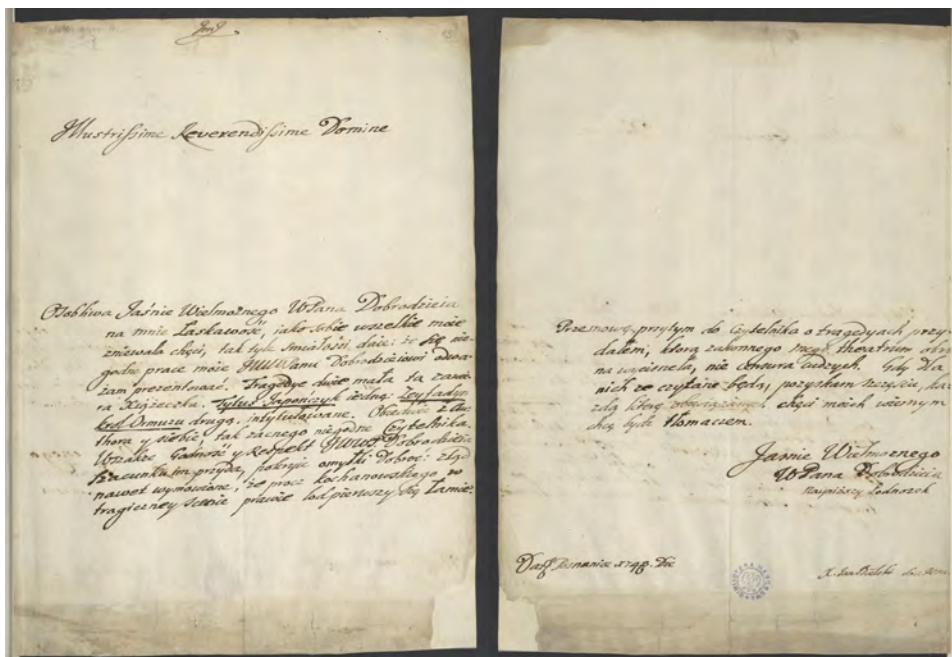 Illustrissime Reverendissime Domine
Osobliwa Jaśnie Wielmożnego WPana Dobrodzieia
na mnie Łaskawość, jako sobie wszelkie moie
zniewala chęci, tak tyle śmiałości daie: że się nie-
godne prace moie JWWPanu Dobrodzieiowi odwa-
żam prezentować. Tragedye dwie mała ta zawie-
ra Xiążeczka. Tytus Japończyk iedną: Zeyfadyn
Krol Ormuzu drugą, intytulowane. Obiedwie z Au-
thora y siebie tak zacnego niegodne Czytelnika.
Wszakże Godność y Respekt JWWP Dobrodzieia
szacunku im przyda, pokryie omyłki Dobroć: zląd
nawet wymowione, że procz Kochanowskiego w
tragiczney scenie prawie lod pierwszy się łamie.
Przemowę przytym do Czytelnika o tragedyach przy-
dałem, ktorą zasumnego mego theatrum obro-
na wycisnęła, nie censura cudzych. Gdy Dla
nich ze czytane będą, pozyskam szczęście, każ-
dą literę chęci moich wiernym
chcę bydz tłomaczem.
Jaśnie Wielmożnego
WPana Dobrodzieia
Nayniższy Podnożek
Dat Posnaniæ 1748. Die
X. Jan Bielski